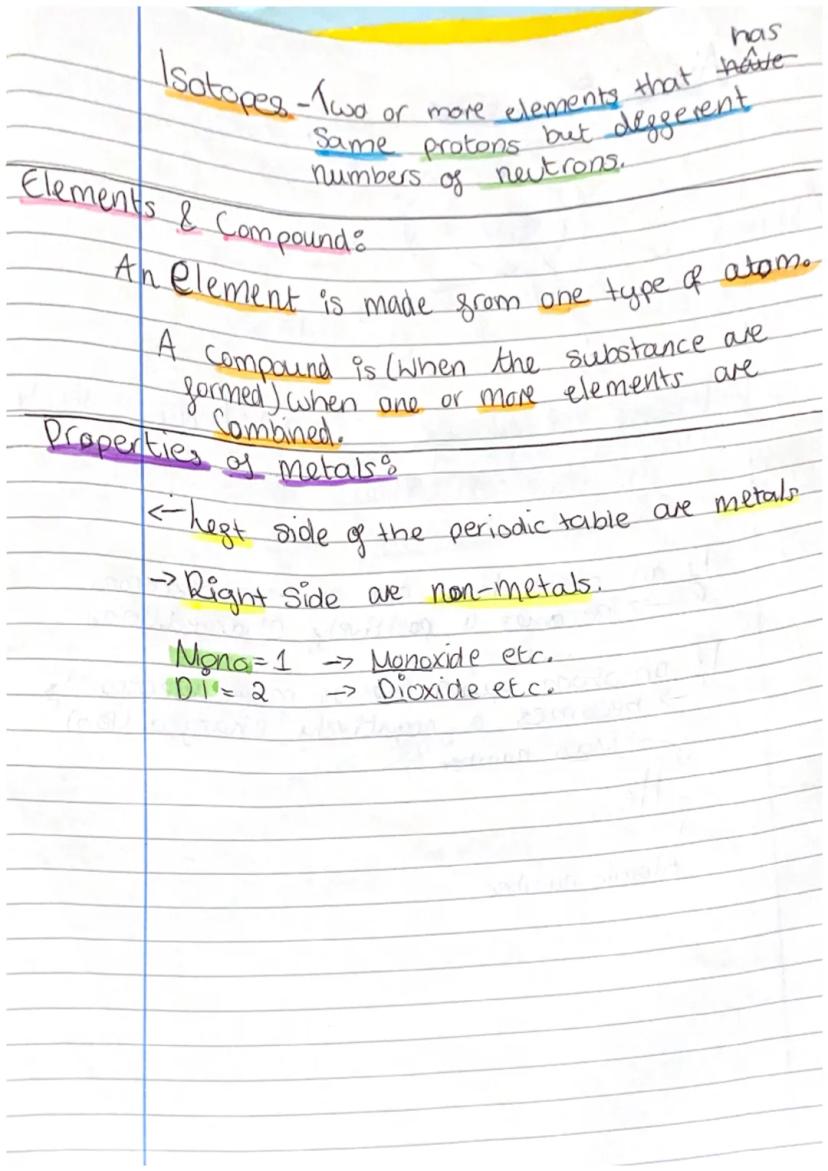 has
Isotopes - Two or more elements that have
Same protons but defferent
numbers of neutrons.
Elements & Compound:
An Element is made from one type of atom.
A compound is (when the substance are
formed) when one or more elements are
Combined.
Properties of metals:
← left side of the periodic table are metals
→ Right Side are non-metals.
Mono = 1 → Monoxide etc.
Di = 2 → Dioxide etc.